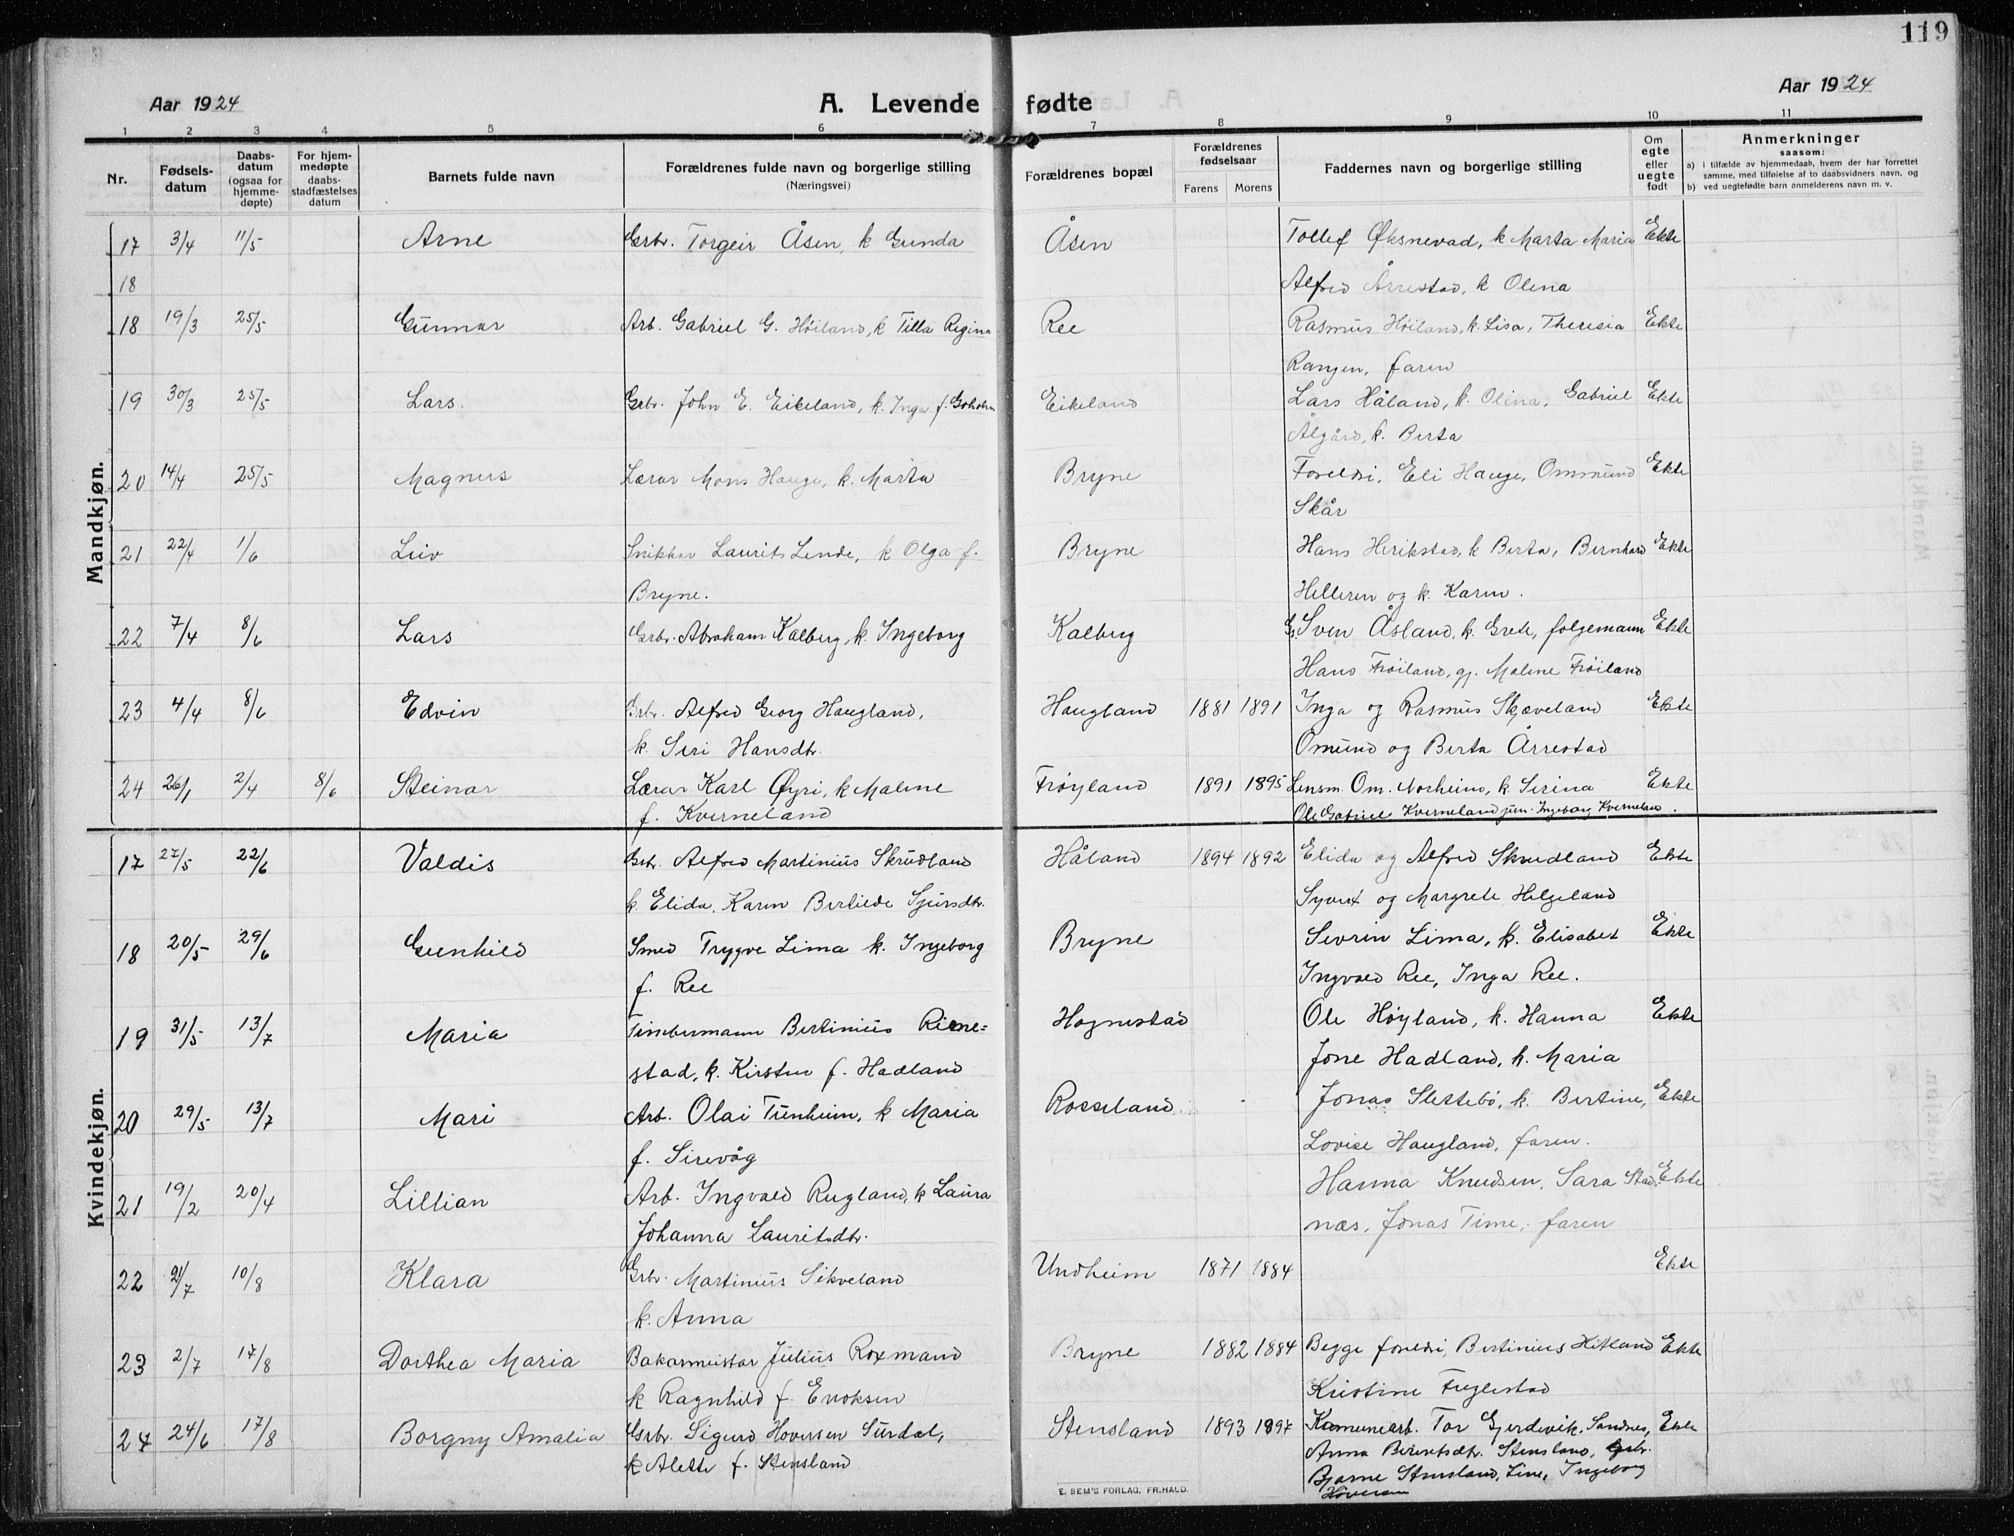 119
Aar 1924
A. Levende fødte
Aar 1924
1 2 3 4 5 6 7 8 9 10 11
Nr.
Fødsels-
datum
Daabs-
datum
(ogsaa for
hjemme-
døpte)
For hjem-
medøpte
daabs-
stadfæstelses
datum
Barnets fulde navn
Forældrenes fulde navn og borgerlige stilling
(Næringsvei)
Forældrenes bopæl
Forældrenes
fødselsaar
Farens Morens
Faddernes navn og borgerlige stilling
Om
egte
eller
uegte
født
Anmerkninger
saasom:
a) i tilfælde av hjemmedaab, hvem der har forrettet
samme, med tilføielse af to daabsvidners navn, og
b) ved uegtefødte barn anmelderens navn m. v.
Mandkjøn.
17 3/4 11/5 Arne Grbr. Torgeir Åsen, k Gunda Åsen Tollef Øksnevad, k Marta Maria Ekte
18 Alfred Årrestad, k Olena
18 19/3 25/5 Gunnar Arb. Gabriel G. Høiland, k Tilla Regina Ree Rasmus Høiland, k. Lisa, Theresia Ekte
faren
19 30/3 25/5 Lars. Grbr. John E. Eikeland, k. Inga f. Eikeland Lars Håland, k. Olina, Gabriel Ekte
Ålgård, k. Berta
20 14/4 25/5 Magnus Lærar Mons Hauge, k. Marta Bryne Foreldri, Eli Hauge, Ommund Ekte
Skår
21 22/4 1/6 Liv Snikkar Laurits Lende, k Olga f. Bryne Hans Herikstad, k Berta, Bernhard Ekte
Bryne. Helleren og k. Karen.
22 7/4 8/6 Lars Grbr. Abraham Kalberg, k Ingeborg Kalberg G. Sven Åsland, k. Grete, følgemann Ekte
Hans Frøiland, gj. Malene Frøiland
23 4/4 8/6 Edvin Grbr. Alfred Georg Haugland, Haugland 1881 1891 Inga og Rasmus Skæveland Ekte
k. Seri Hansdtr. Omund og Berta Årrestad
24 26/1 2/4 8/6 Steinar Lærar Karl Øyri, k Malene Frøyland 1891 1895 Lensm. Om. Norheim, k Serina Ekte
f. Kverneland Ole Gabriel Kverneland jun. Ingeborg Kverneland.
Kvindekjøn.
17 27/5 22/6 Valdis Grbr. Alfred Martinius Skrudland Håland 1894 1892 Elida og Alfred Skrudland Ekte
k. Elida Karen Bertilde Sjursdtr. Syvert og Margrete Helgeland
18 20/5 29/6 Gunhild Smed Trygve Lima k. Ingeborg Bryne Sevrin Lima, k. Elisabet Ekte
f. Ree Ingvald Ree, Inga Ree.
19 31/5 13/7 Maria Timbermann Bertinius Riene= Hognestad Ole Høyland, k. Hanna Ekte
stad, k. Kirsten f. Hadland Jone Hadland, k. Maria
20 29/5 13/7 Mari Arb. Olai Tunheim, k Maria Rosseland Jonas Slettebø, k. Bertine, Ekte
f. Sirevåg Lovise Haugland, faren.
21 19/2 20/4 Lillian Arb. Ingvald Rugland, k Laura Hanna Knudsen, Sara Stad Ekte
Johanna Lauritsdtr. næs, Jonas Time, faren
22 2/7 10/8 Klara Grbr. Martinius Sikveland Undheim 1871 1884 Ekte
k. Anna
23 2/7 17/8 Dorthea Maria Bakarmeistar Julius Roxmand Bryne 1882 1884 Begge foreldri, Bertinius Hetland Ekte
k Ragnhild f. Enoksen Kristine Fuglestad
24 24/6 17/8 Borgny Amalia Grbr. Sigurd Hoversen Surdal, Stensland 1893 1897 Komunearb. Tor Gjerdevik, Sandnes, Ekte
k Alette f. Stensland Anna Berentsdtr. Stensland, Grbr.
Bjarne Stensland, Line, Ingeborg
Hoversen
E. SEM'S FORLAG, FR.HALD.